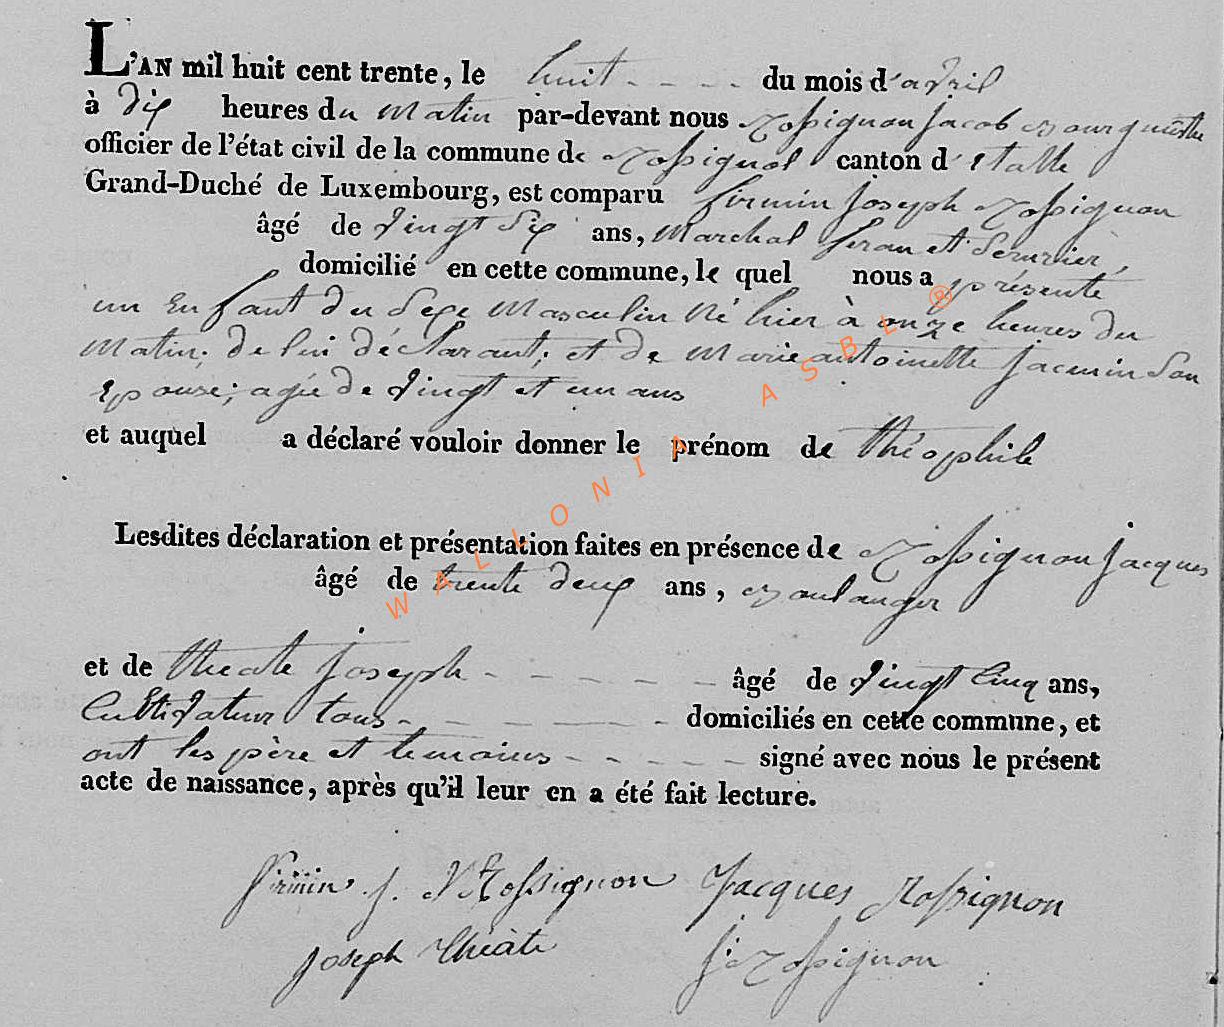 L'AN mil huit cent trente, le huit - - - - du mois d'avril
à dix heures du matin par-devant nous Rossignon jacob Bourguestre
officier de l'état civil de la commune de Rossignol canton d'Etalle
Grand-Duché de Luxembourg, est comparu firmin joseph Rossignon
âgé de vingt six ans, marchal feran et serurier,
domicilié en cette commune, le quel nous a présenté
un enfant du sexe masculin né hier à onze heures du
matin; de lui déclarant; et de marie antoinette jacmin son
épouse; agée de vingt et un ans
et auquel a déclaré vouloir donner le prénom de théophile
Lesdites déclaration et présentation faites en présence de Rossignon jacques
âgé de trente deux ans, Boulanger
et de theate joseph - - - - - âgé de vingt cinq ans,
cultivateur tous - - - - - domiciliés en cette commune, et
ont les père et temoins - - - - - signé avec nous le présent
acte de naissance, après qu'il leur en a été fait lecture.
firmin j. Rossignon Jacques Rossignon
joseph theate j: Rossignon
WALLONIA ASBL ®